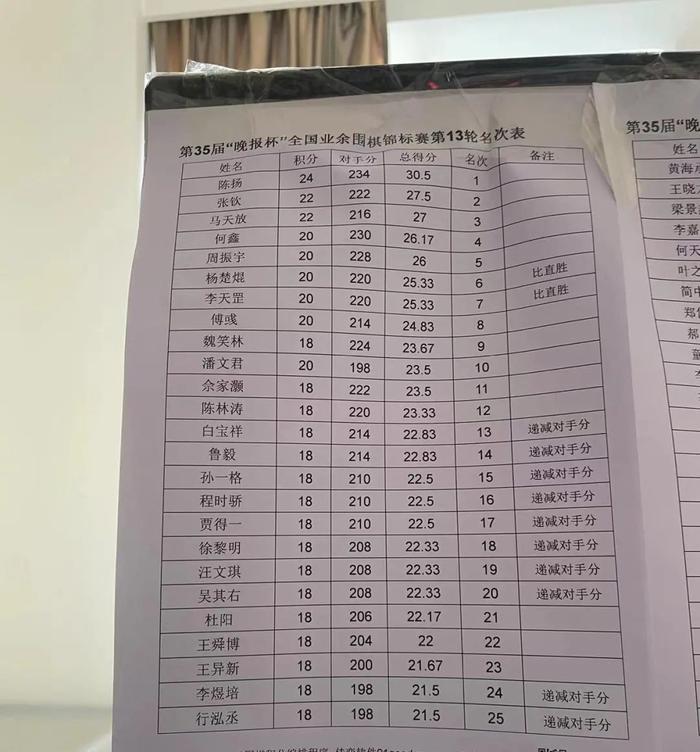 第35届“晚报杯”全国业余围棋锦标赛第13轮名次表
姓名 积分 对手分 总得分 名次 备注
陈扬 24 234 30.5 1
张钦 22 222 27.5 2
马天放 22 216 27 3
何鑫 20 230 26.17 4
周振宇 20 228 26 5
杨楚焜 20 220 25.33 6 比直胜
李天罡 20 220 25.33 7 比直胜
傅彧 20 214 24.83 8
魏笑林 18 224 23.67 9
潘文君 20 198 23.5 10
佘家灏 18 222 23.5 11
陈林涛 18 220 23.33 12
白宝祥 18 214 22.83 13 递减对手分
鲁毅 18 214 22.83 14 递减对手分
孙一格 18 210 22.5 15 递减对手分
程时骄 18 210 22.5 16 递减对手分
贾得一 18 210 22.5 17 递减对手分
徐黎明 18 208 22.33 18 递减对手分
汪文琪 18 208 22.33 19 递减对手分
吴其右 18 208 22.33 20 递减对手分
杜阳 18 206 22.17 21
王舜博 18 204 22 22
王异新 18 200 21.67 23
李煜培 18 198 21.5 24 递减对手分
行泓丞 18 198 21.5 25 递减对手分
第35届“晚
姓名
黄海
王晓
梁景
李嘉
何天
叶之
简中
郑